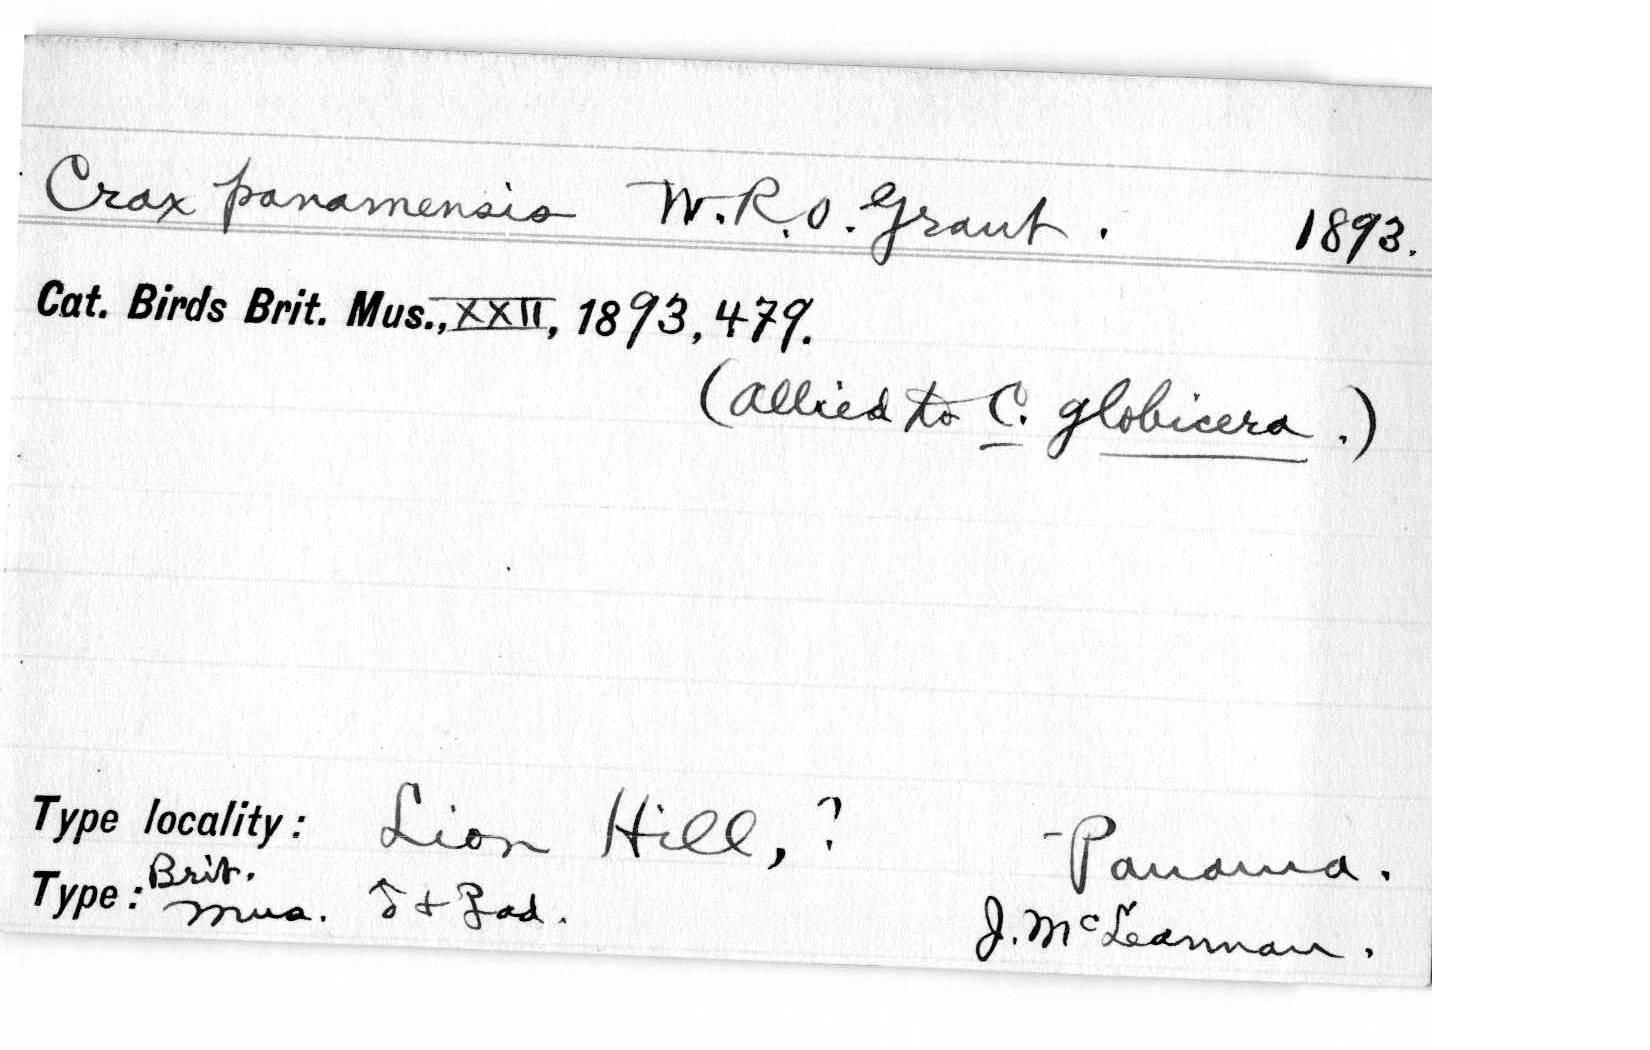 Crax panamensis W.R.O. Grant. 1893.
Cat. Birds Brit. Mus., XXII, 1893, 479.
(allied to C. globicera.)
Type locality: Lion Hill, ? - Panama.
Type: Brit. Mus. ♂ + ♀ ad. J. McLeannan.